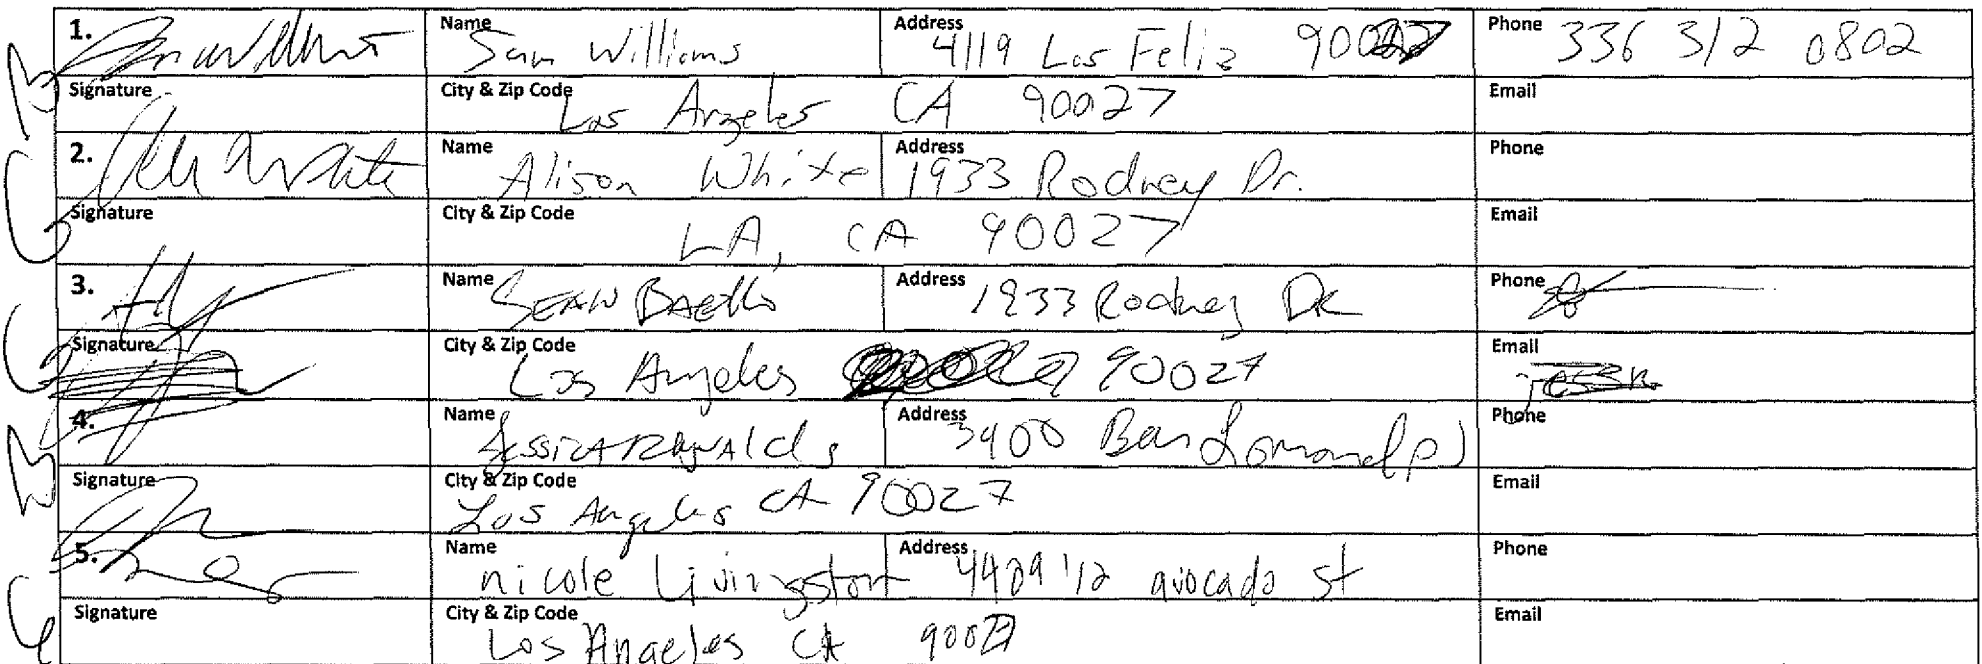 1. Name Sam Williams Address 4119 Los Feliz 90027 Phone 336 312 0802
Signature City & Zip Code Los Angeles CA 90027 Email
2. Name Alison White Address 1933 Rodney Dr. Phone
Signature City & Zip Code LA, CA 90027 Email
3. Name SEAN Address 1933 Rodney DR Phone
Signature City & Zip Code Los Angeles 90027 Email
4. Name Address 3900 Ben Lomond pl Phone
Signature City & Zip Code Los Angeles CA 90027 Email
5. Name nicole Livingston Address 4409 1/2 avocado st Phone
Signature City & Zip Code Los Angeles CA 90027 Email